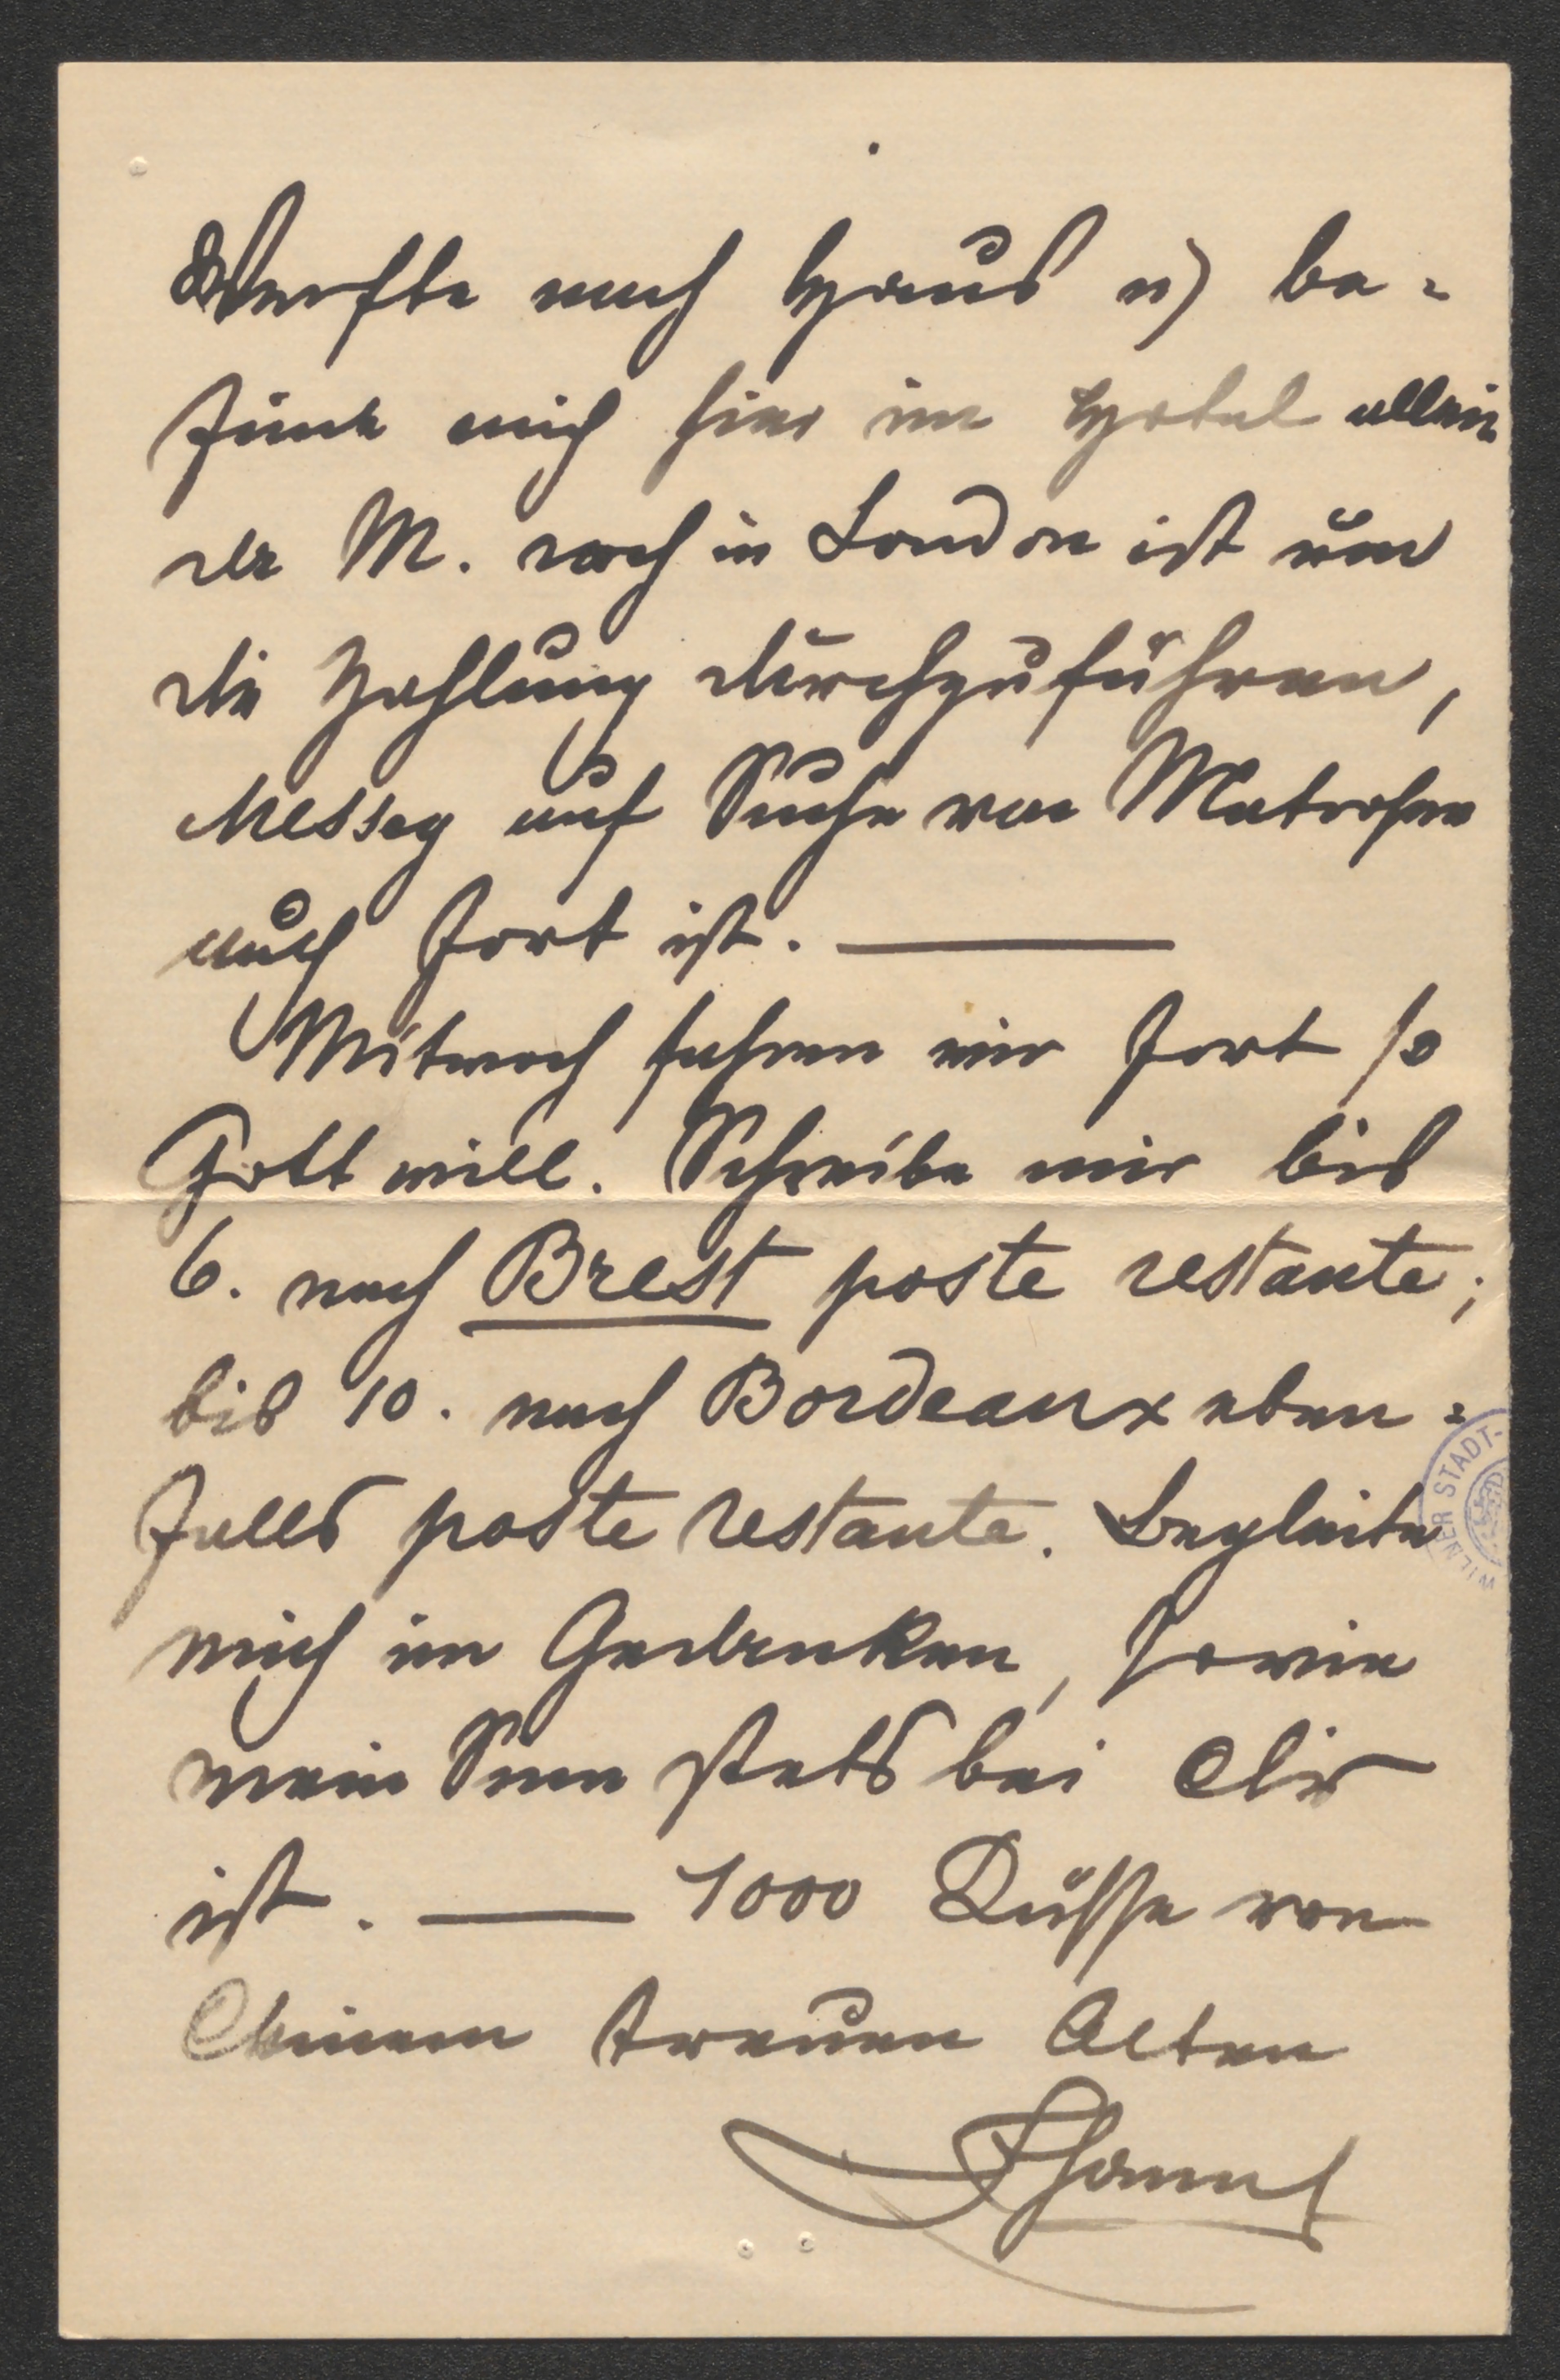 Werfte nach Haus u) be-
finde mich hier im Hotel allein
da M. noch in London ist um
die Zahlung durchzuführen,
Messey auf Suche von Matrosen
auch fort ist. —
Mitwoch fahren wir fort so
Gott will. Schreibe mir bis
6. nach Brest poste restante;
bis 10. nach Bordeaux eben-
falls poste restante. Begleite
mich im Gedenken, sowie
mein Sinn stets bei Dir
ist. — 1000 Küsse von
Deinem treuen Alten
WIENER STADT-